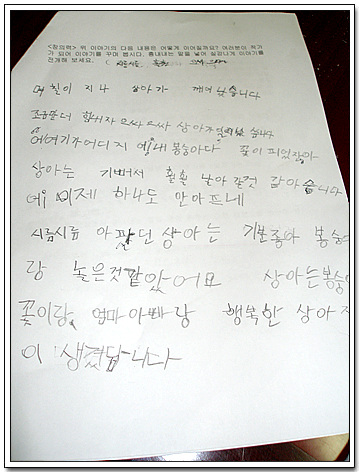 <창의력> 위 이야기의 다음 내용은 어떻게 이어질까요? 여러분이 작가
가 되어 이야기를 꾸며 봅시다. 흉내내는 말을 넣어 실감나게 이야기를
전개해 보세요. ( 시름시름 훨훨
며칠이 지나 상아가 깨어 났습니다
조금만더 힘내자 으싸 으싸 상아가 습니다
어 여기가 어디지 어 내 봉숭아다 꽃이 피었잖아
상아는 기뻐서 훨훨 날아 갈것 같아습니다
어 이제 하나도 안아프네
시름시름 아팠던 상아는 기분좋아 봉숭아
랑 놀은것같았어요 상아는봉숭
꽃이랑 엄마아빠랑 행복한 상아
이 생겼답니다